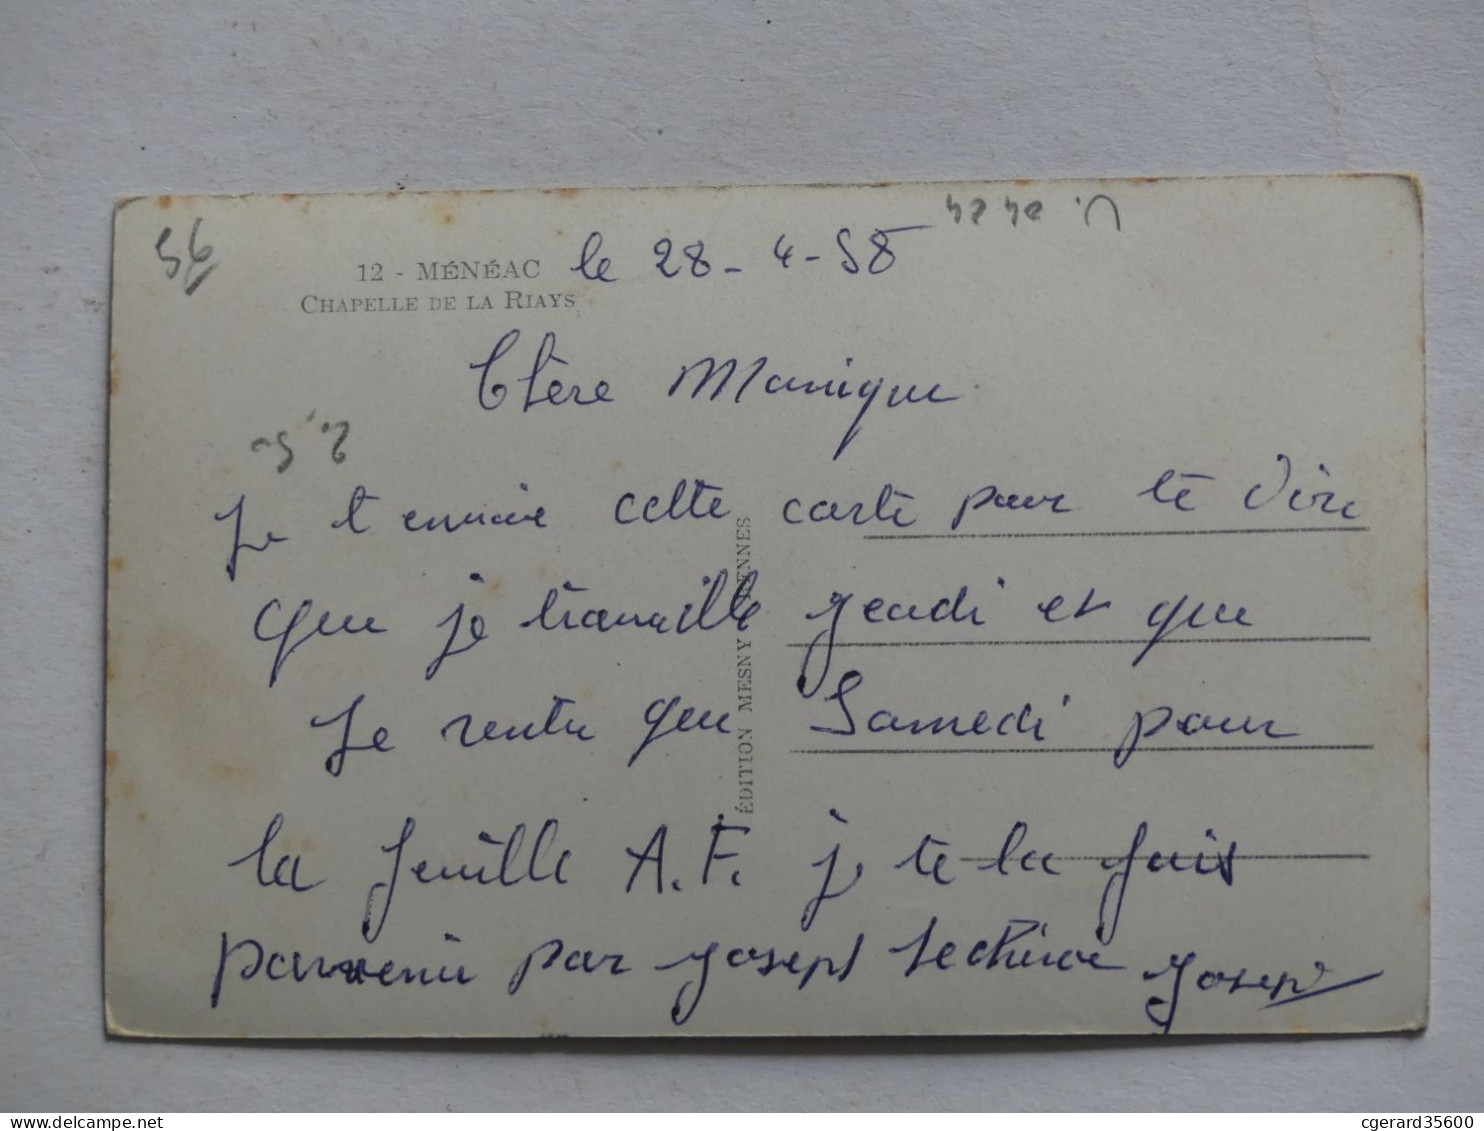 56
12 - MÉNÉAC
CHAPELLE DE LA RIAYS
le 28-4-58
Chère Monique
2.50
Je t envoie cette carte pour te dire
que je travaille jeudi et que
Je rentre que Samedi pour
la feuille A.F. je te la fais
parvenir par Joseph
Joseph
ÉDITION MESNY RENNES
cgerard35600